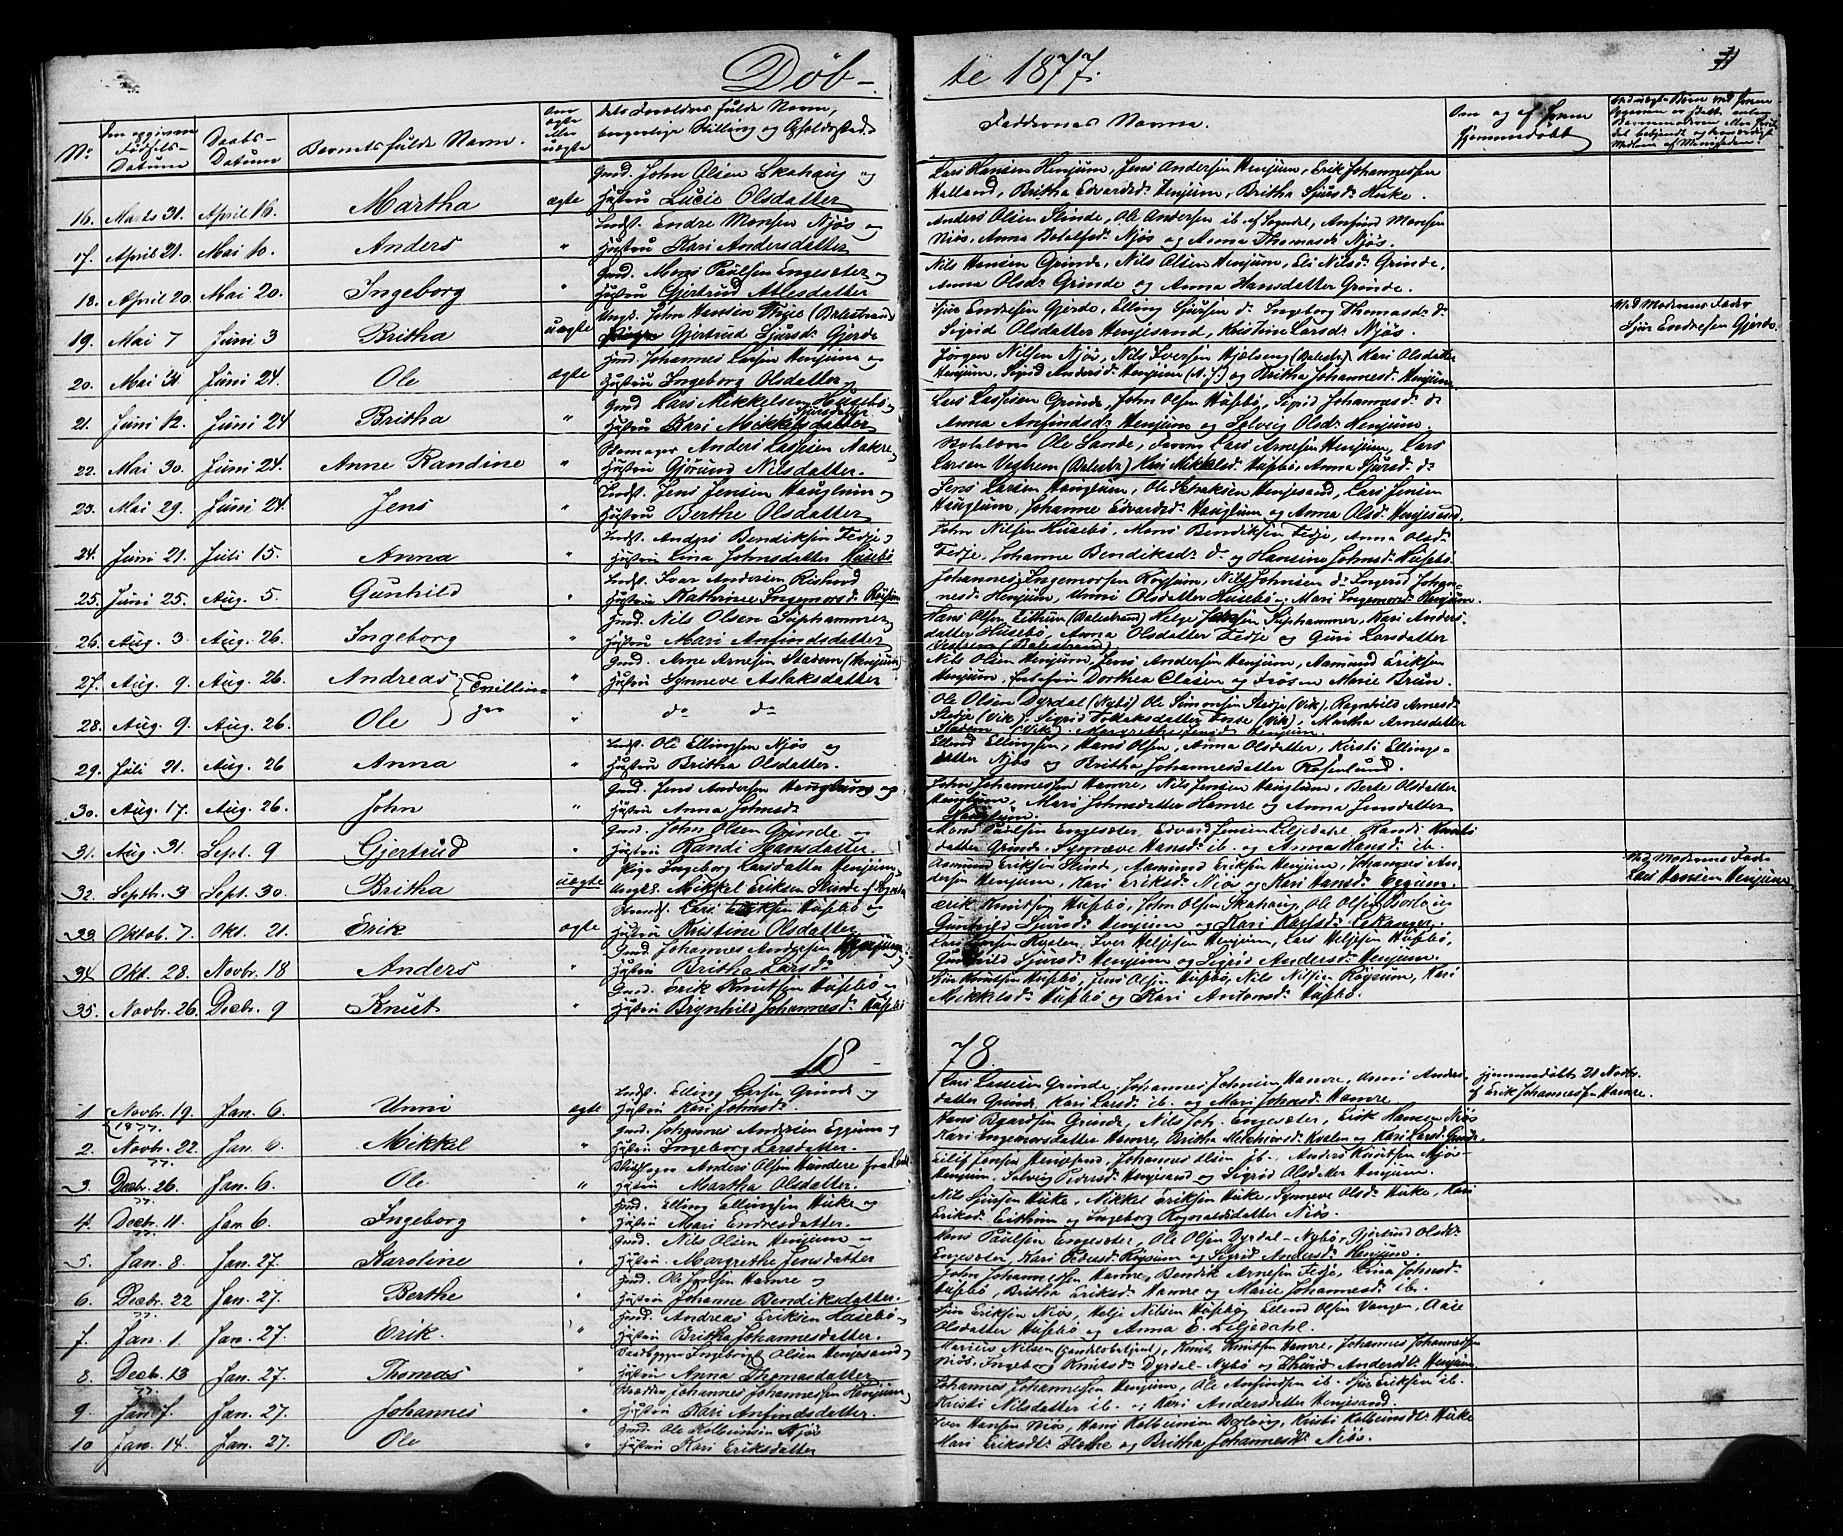 Døb-
te 1877.
No
Den opgivne Fødsels-Datum
Daabs-Datum
Barnets fulde Navn.
Om ægte eller uægte
dets Forældres fulde Navn, borgerlige Stilling og Opholdssted.
Faddernes Navne.
Om og af hvem hjemmedøbt
16. Marts 31. April 16. Martha ægte
Gmd. John Olsen Skahaug og
Hustru Lucie Olsdatter
Lars Hansen Henjum, Jens Andersen Henjum, Erik Johannessen
Halland, Britha Edvardsd. Henjum, Britha Sjursd. Huke.
17. April 21. Mai 10. Anders "
Indst. Endre Monsen Njøs og
Hustru Kari Andersdatter
Anders Olsen Slinde, Ole Andersen ib. af Sogndal, Anfind Monsen
Niøs, Anna Botolfsd. Njøs og Anna Thomasd. Njøs.
18. April 20. Mai 20. Ingeborg "
Gmd. Mons Paulsen Engesæter og
Hustru Gjertrud Atlesdatter
Nils Hansen Grinde, Nils Olsen Henjum, Eli Nilsd. Grinde,
Anna Olsd. Grinde og Anna Hansdatter Grinde.
19. Mai 7 Juni 3 Britha uægte
Ungk. John Hansen (Balestrand)
Gjertrud Sjursd. Gjerde
Sjur Endresen Gjerde, Elling Sjursen do. Ingeborg Thomasd. do.
Sigrid Olsdatter Henjesand, Kristine Larsd. Njøs.
Ved Moderens Fader
Sjur Endresen Gjerde.
20. Mai 31. Juni 24. Ole ægte
Gmd. Johannes Larsen Henjum og
Hustru Ingeborg Olsdatter
Jørgen Nilsen Njøs, Nils Iversen (Balestr.) Kari Olsdatter
Henjum, Sigrid Andersd. Henjum og Britha Johannesd. Henjum.
21. Juni 12. Juni 24 Britha "
Gmd Lars Mikkelsen Husebø
Hustru Kari Sjursdatter
Lars Lassesen Grinde, John Olsen Husebø, Sigrid Johannesd. do
Anna Anfindsd. Henjum og Solveig Olsd. Henjum.
22. Mai 30. Juni 24. Anne Randine "
Skomager Anders Lassesen Aakre
Hustru Gjørund Nilsdatter.
Ole Sande, Lars Arnesen Henjum, Lars
Larsen Vestrem (Balestr.) Kari Mikkelsd. Husebø, Anna Sjursd. do
23. Mai 29. Juni 24. Jens "
Indst. Jens Jensen Hauglum og
Hustru Berthe Olsdatter
Jens Larsen Hauglum, Ole Isaksen Henjesand, Lars Jensen
Hauglum, Johanne Edvardsd. Hauglum og Anna Olsd. Henjesand.
24. Juni 21. Juli 15. Anna "
Indst. Anders Bendiksen Fedje
Hustru Lina Johnsdatter Husebø
John Nilsen Husebø, Mons Bendiksen Fedje, Anna Olsd.
Fedje, Johanne Bendiksd. do. og Hansine Johnsd. Husebø
25. Juni 25. Aug. 5. Gunhild "
Indst. Ivar Andersen
Hustru Kathrine Ingemorsd. Røysum
Johannes Ingemorsen Røysum, Nils Johnsen do. Ingerid Johannesd. Henjum, Unni Olsdatter Husebø, Mari Ingemorsd. Henjum.
26. Aug. 3 Aug. 26. Ingeborg "
Gmd. Nils Olsen Suphammer
Hustru Mari Anfindsdatter
Hans Olsen Eithun (Balestrand) Helge Suphammer, Kari Anders-
datter Husebø, Anna Olsdatter Fedje og Guri Larsdatter
Vestrem (Balestrand)
27. Aug. 9. Aug. 26. Andreas } Tvillin- "
Gmd. Arne Arnesen Stadem (Henjum)
Hustru Synneve Aslaksdatter
Nils Olsen Henjum, Jens Andersen Henjum, Aamund Eriksen
Henjum, Dorthea Clasen og Marie Brun.
28. Aug. 9 Aug. 26 Ole } ger "
do do
Ole Olsen Dyrdal (Nybø) Ole Simonsen Stedje (Vik), Ragnhild Arnesd.
Stedje (Vik), Sigrid (Vik), Martha Arnesdatter
Stadem (Vik), Margrethe Henjum.
29. Juli 21. Aug. 26 Anna "
Indst. Ole Ellingsen Njøs og
Hustru Britha Olsdatter.
Ellend Ellingsen, Hans Olsen, Anna Olsdatter, Kirsti Ellings-
datter Njøs og Britha Johannesdatter Rosenlund.
30. Aug. 17. Aug. 26. John "
Gmd. Jens Andersen Hauglum og
Hustru Anna Johnsd.
John Johannessen Hamre, Nils Jensen Hauglum, Berte Olsdatter
Hauglum, Mari Johnsdatter Hamre og Anna Jensdatter
Hauglum.
31. Aug. 31. Sept. 9 Gjertrud "
Gmd. John Olsen Grinde og
Hustru Randi Hansdatter.
Mons Paulsen Engesæter, Edvard Jensen Liljedahl, Randi
datter Grinde, Synneve Hansd. ib. og Anna Hansd. ib.
32. Septb. 3 Sept. 30. Britha uægte
Pige Ingeborg Larsdatter Henjum
Ungk. Mikkel Eriksen Slinde af Sogndal
Aamund Eriksen Slinde, Aamund Eriksen Henjum, Johannes An-
dersen Henjum, Kari Eriksd. Njøs og Kari Hansd. Eggum.
Ved Moderens Fader
Lars Hansen Henjum.
33 Oktob. 7. Okt. 21. Erik ægte
Lars Eriksen Husebø og
Hustru Kristine Olsdatter
Erik Knutsen Husebø, John Olsen Skahaug, Ole Olsen
Gunhild Sjursd. Henjum og Kari Leikanger.
34 Okt. 28. Novbr. 18 Anders "
Gmd. Johannes Andersen Henjum
Hustru Britha Larsd.
Lars Kvalen, Iver Helgesen Henjum, Lars Helgesen Husebø,
Gunhild Sjursd. Henjum og Sigrid Andersd. Henjum.
35. Novbr. 26. Decbr. 9 Knut "
Gmd. Erik Knutsen Husebø
Hustru Brynhild Johannesd. Husebø
Knutsen Husebø, Jens Olsen Husebø, Nils Nilsen Røysum, Kari
Mikkelsd. Husebø og Kari Antonsd. Husebø.
18
78.
1 Novbr. 19. 1877. Jan. 6. Unni ægte
Indst. Elling Larsen Grinde og
Hustru Kari Johnsd.
Lars Lassesen Grinde, Johannes Johnsen Hamre, Unni Anders-
datter Grinde, Kari Larsd. ib. og Mari Johnsd. Hamre
Hjemmedøbt 21 Novbr.
af Erik Johannessen Hamre.
2. Novbr. 22 77. Jan. 6. Mikkel "
Gmd. Johannes Andersen Eggum og
Hustru Ingeborg Larsdatter.
Hans Grinde, Nils Joh. Engesæter, Erik Hansen Njøs
Kari Ingemorsdatter Hamre, Britha Melchiorsd. Kvalen og Kari Larsd. Grinde.
3. Decbr. 26. 77. Jan. 6. Ole "
Anders Olsen
Hustru Martha Olsdatter.
Eilif Jensen Henjesand, Johannes Olsen ib. Anders Knutsen Njøs-
Henjum, Solveig Pedersd. Henjesand og Sigrid Olsdatter Henjum.
4. Decbr. 11. 77. Jan 6. Ingeborg "
Gmd. Elling Ellingsen Huke og
Hustru Mari Endresdatter.
Nils Sjursen Huke, Mikkel Eriksen Huke, Synneve Olsd. Huke, Kari
Eriksd. Eithun og Ingeborg Rognaldsdatter Niøs.
5. Jan. 8. Jan. 27. Karoline "
Gmd. Nils Olsen Henjum
Hustru Margrethe Jensdatter
Mons Paulsen Engesæter, Ole Olsen Dyrdal-Nybø, Gjertrud Olsdr.
Engesæter, Kari Pedersd. Røysum og Sigrid Andersd. Henjum.
6. Decbr. 22 77. Jan. 27. Berthe "
Gmd. Ole Hamre og
Hustru Johanne Bendiksdatter.
John Johannessen Hamre, Bendik Arnesen Fedje, Lina Johnsd.
Husebø, Britha Eriksd. Hamre og Marie Johannesd. ib.
7. Jan. 1. Jan. 27. Erik. "
Gmd. Andreas Eriksen Husebø
Hustru Britha Johannesdatter.
Sjur Eriksen Njøs, Helje Nilsen Husebø, Erlend Olsen Vangen, Aase
Olsdatter Husebø og Anna E. Liljedahl.
8. Decbr. 13 77. Jan. 27. Thomas "
Ingebrigt Olsen Henjesand
Hustru Anna Thomasdatter
Marius Nilsen (Handelsbetjent), Knut Knutsen Hamre, Johannes Johannessen
Niøs, Ingeborg Knutsd. Dyrdal-Nybø og Thurid Andersd. Henjum
9. Jan. 1. Jan. 27. Johannes "
Johannes Johannessen Henjum
Hustru Kari Anfindsdatter.
Johannes Johannessen Henjum, Ole Anfindsen ib. Sjur Eriksen ib.
Kristi Nilsdatter ib. og Kari Andersdatter Henjesand.
10 Jan. 14. Jan. 27. Ole "
Gmd. Ole Kolbeinsen Njøs
Hustru Kari Eriksdatter
Iver Hansen Niøs, Hans Kolbeinsen Kristi Kolbeinsdtr. Huke
Mari Eriksdtr. og Britha Johannesdtr. Niøs.